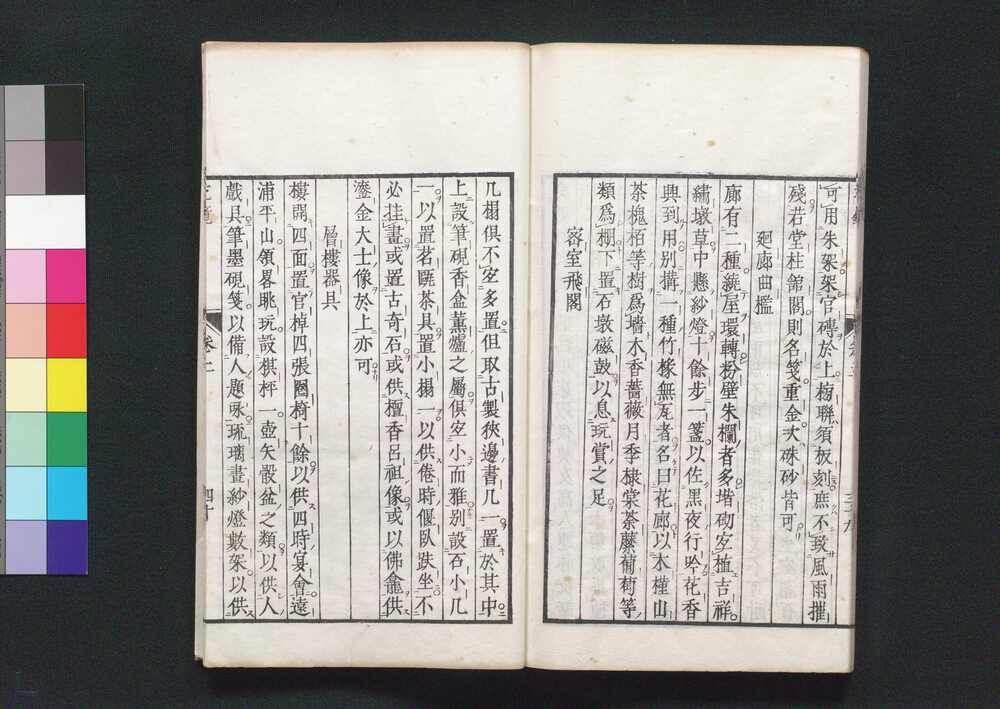 可用朱架架官磚於上楹聯須板刻庶不致風雨摧
殘若堂柱舘閣則名箋重金次硃砂皆可
廻廊曲檻
廊有二種繞屋環轉粉壁朱欄者多堦砌宜植吉祥
繡墩草中懸紗燈十餘步一盞以佐黑夜行吟花香
興到用别搆一種竹椽無瓦者名曰花廊以木槿山
茶槐栢等樹爲墻木香薔薇月季棣棠荼䕷葡萄等
類爲棚下置石墩磁鼓以息玩賞之足
密室飛閣
几榻俱不宜多置但取古製狹邊書几一置於其中
上設筆硯香盒薰爐之屬俱宜小而雅别設石小几
一以置茗甌茶具置小榻一以供倦時偃臥趺坐不
必挂畫或置古奇石或供檀香呂祖像或以佛龕供
鎏金大士像於上亦可
層樓器具
樓開四面置官棹四張圈椅十餘以供四時宴會遠
浦平山領畧眺玩設棋枰一壺矢骰盆之類以供人
戲具筆墨硯箋以備人題咏琉璃畫紗燈數架以供
卷二
四十